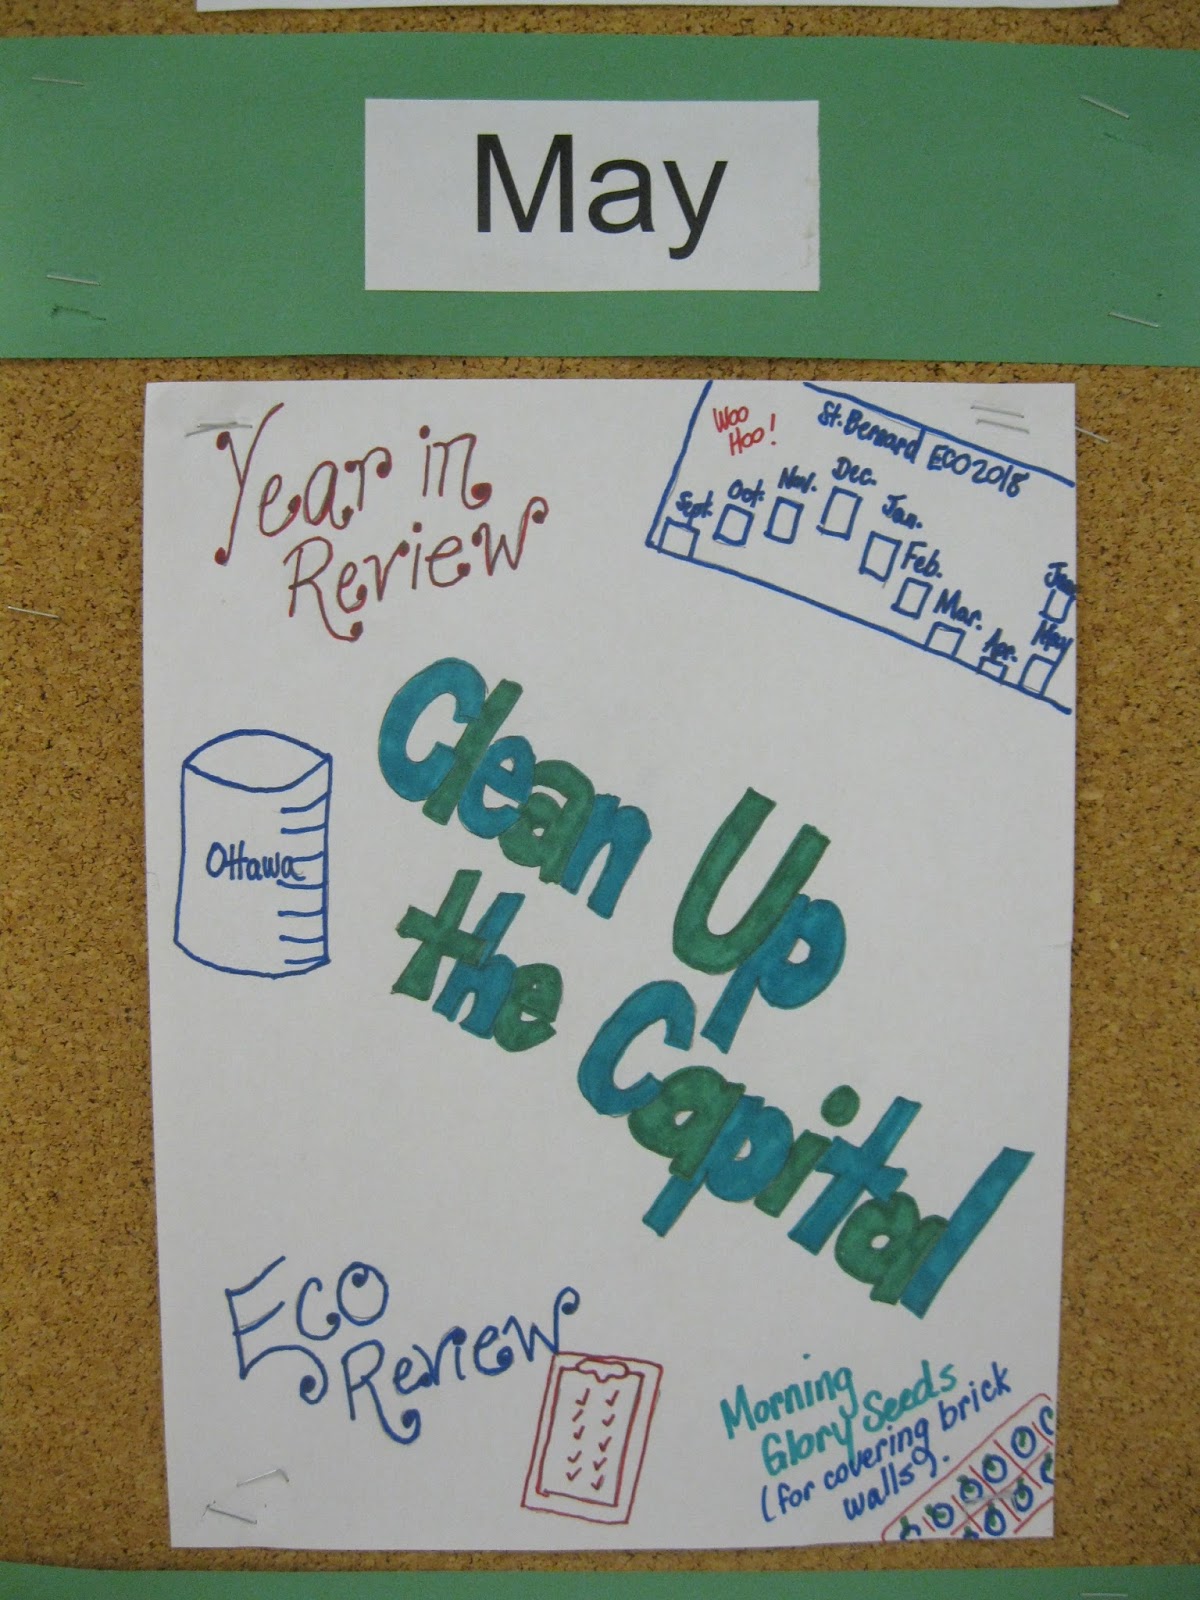 May
Year in
Review
Woo
Hoo!
St. Bernard ECO2018
Sept. Oct. Nov. Dec.
Jan.
Feb.
Mar.
Apr.
May
Ottawa
Clean Up
the Capital
Eco
Review
Morning
Glory Seeds
(for covering brick
walls).